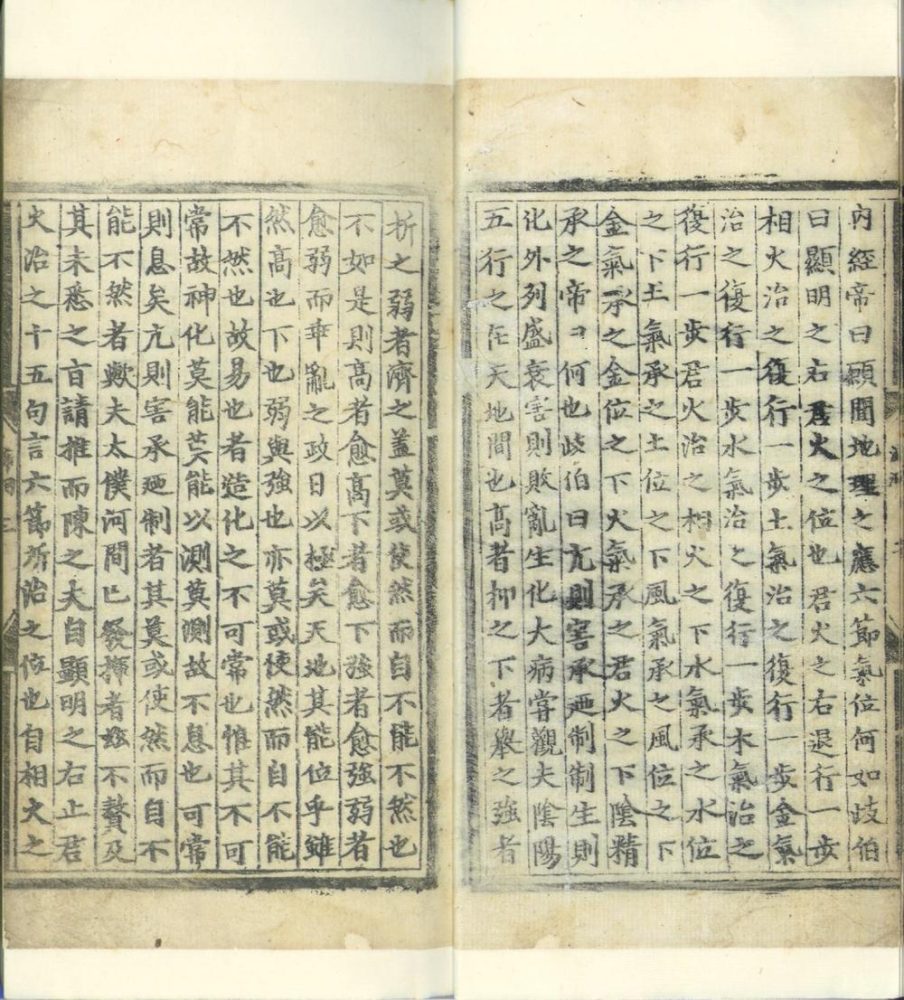 內經帝曰願聞地理之應六節氣位何如歧伯
曰顯明之右君火之位也君火之右退行一步
相火治之復行一步土氣治之復行一步金氣
治之復行一步水氣治之復行一步木氣治之
復行一步君火治之相火之下水氣承之水位
之下土氣承之土位之下風氣承之風位之下
金氣承之金位之下火氣承之君火之下陰精
承之帝曰何也歧伯曰亢則害承廼制制生則
化外列盛衰害則敗亂生化大病嘗觀夫陰陽
五行之在天地間也高者抑之下者舉之強者
折之弱者濟之盖莫或使然而自不能不然也
不如是則高者愈高下者愈下強者愈強弱者
愈弱而乖亂之政日以極矣天地其能位乎雖
然高也下也弱與強也亦莫或使然而自不能
不然也故易也者造化之不可常也惟其不可
常故神化莫能莫能以測莫測故不息也可常
則息矣亢則害承廼制者其莫或使然而自不
能不然者歟夫太僕河間已發揮者玆不贅及
其未悉之旨請推而陳之夫自顯明之右止君
火治之十五句言六節所治之位也自相火之